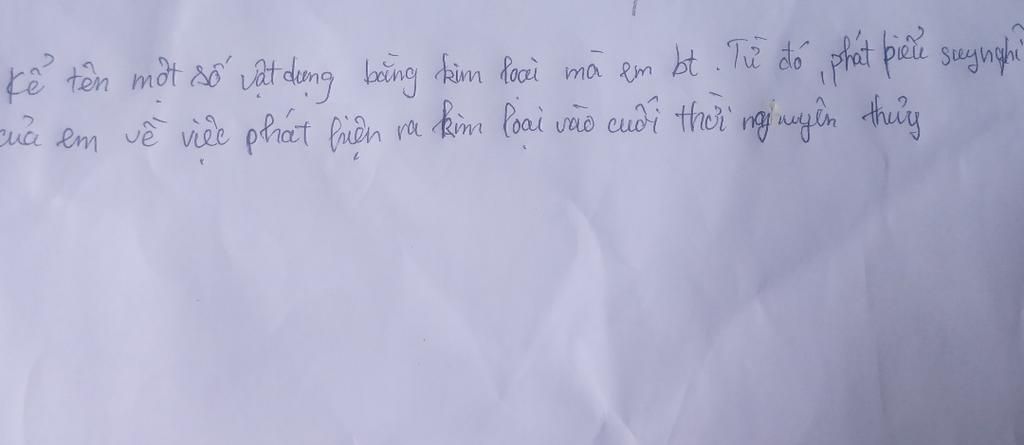 Kể tên một số vật dụng bằng kim loại mà em bt. Từ đó, phát biểu suy nghĩ
của em về việc phát hiện ra kim loại vào cuối thời nguyên thủy